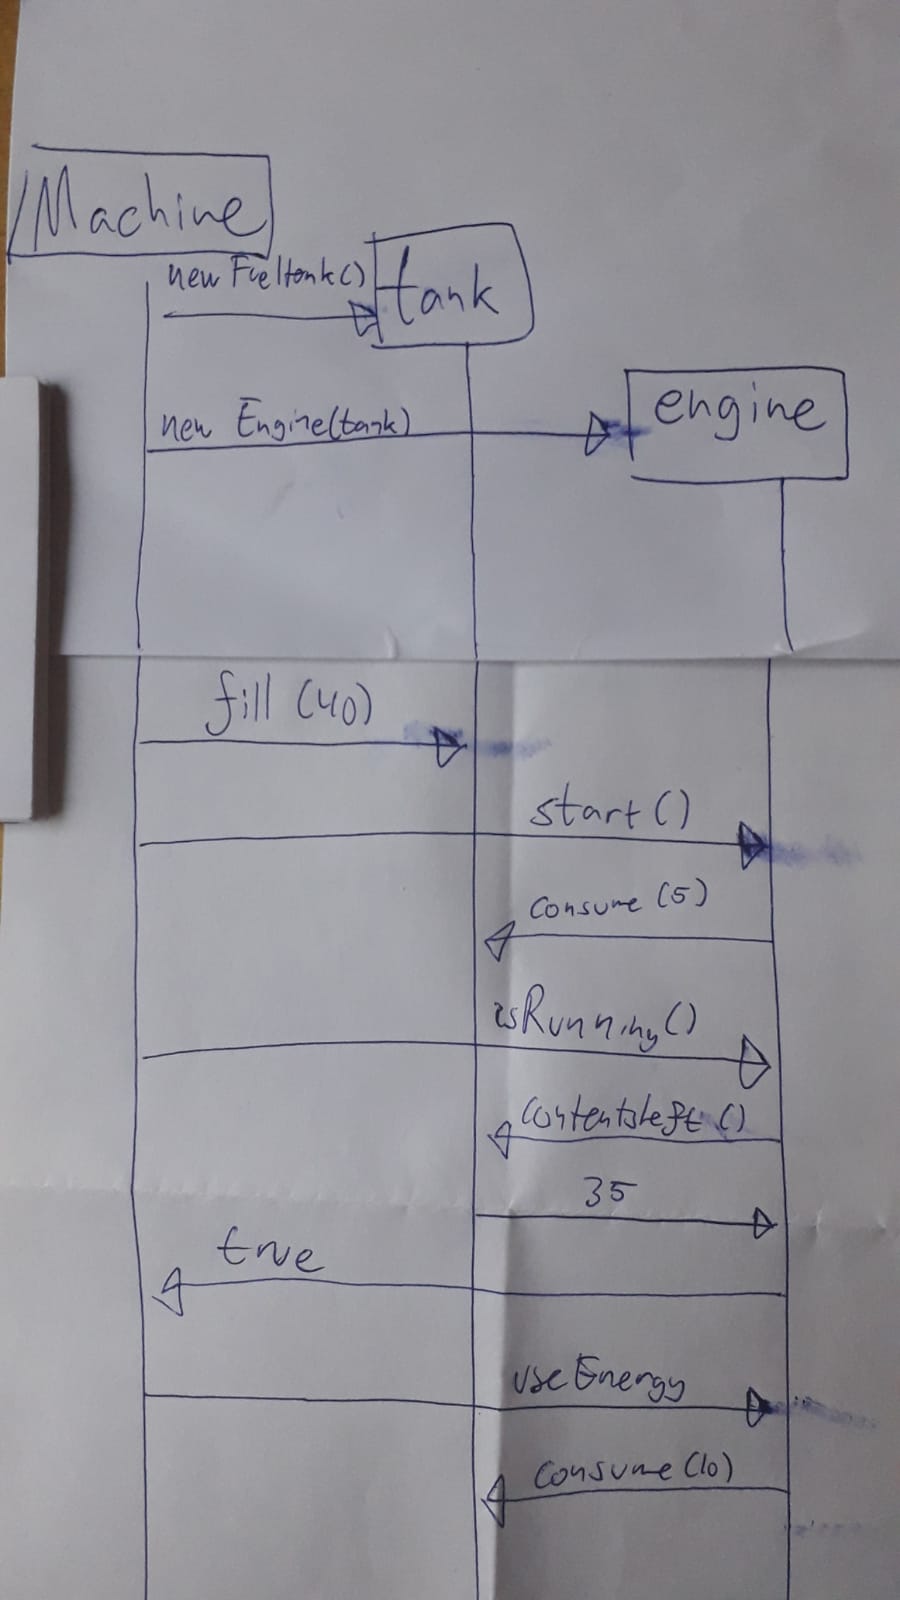 Machine
new Fueltank()
tank
new Engine(tank)
engine
fill (40)
start()
Consume (5)
isRunning()
ContentsLeft ()
35
true
useEnergy
Consume (10)